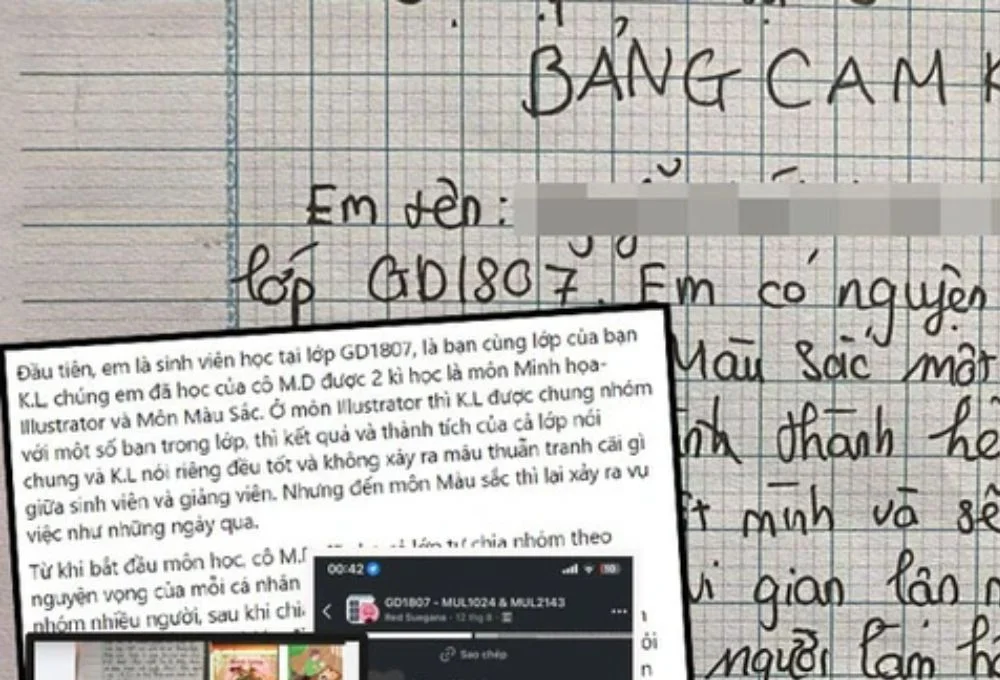 BẢNG CAM K
Em tên:
lớp GD1807. Em có nguyện
Màu sắc một
nh thành
mình và sẽ
gian
người
Đầu tiên, em là sinh viên học tại lớp GD1807, là bạn cùng lớp của bạn
K.L, chúng em đã học của cô M.D được 2 kì học là môn Minh họa-
Illustrator và Môn Màu Sắc. Ở môn Illustrator thì K.L được chung nhóm
với một số bạn trong lớp, thì kết quả và thành tích của cả lớp nói
chung và K.L nói riêng đều tốt và không xảy ra mâu thuẫn tranh cãi gì
giữa sinh viên và giảng viên. Nhưng đến môn Màu sắc thì lại xảy ra vụ
việc như những ngày qua.
Từ khi bắt đầu môn học, cô M.D lớp tự chia nhóm theo
nguyện vọng của mỗi cá nhân
nhóm nhiều người, sau khi chia
00:42
GD1807 - MUL1024 & MUL2143
Red Suegana · 12 thg 8
Sao chép